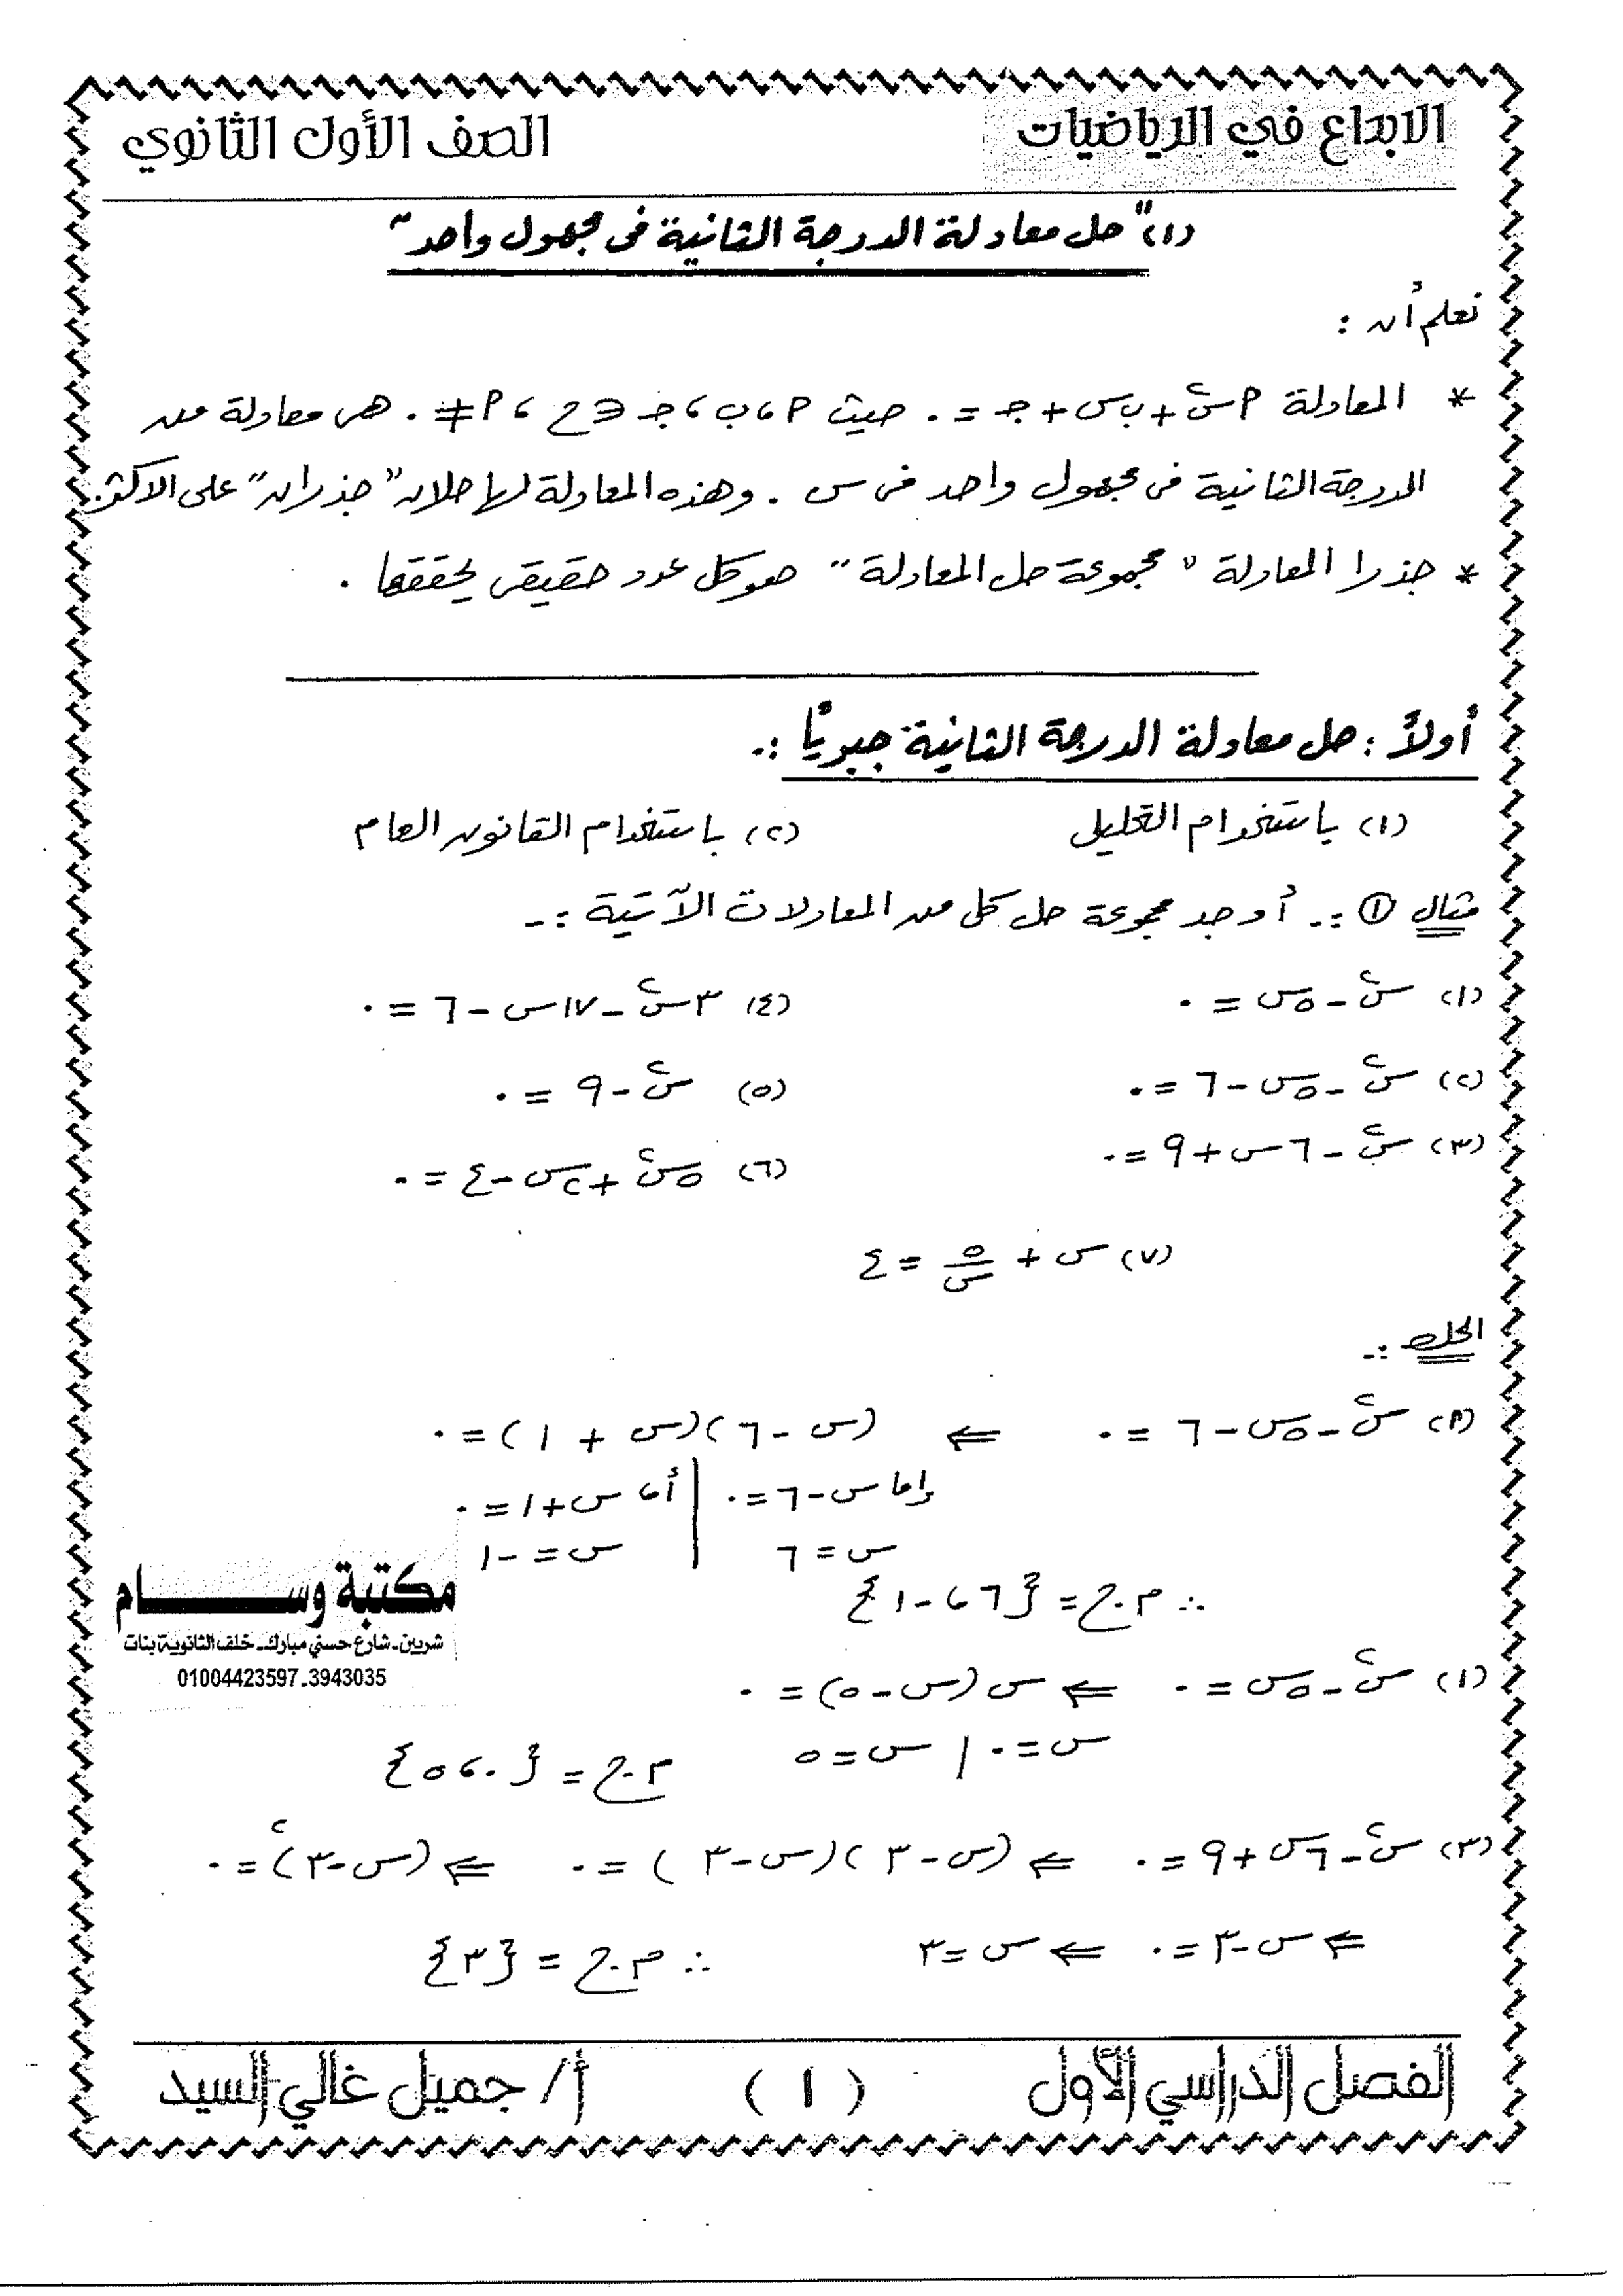 الابداع في الرياضيات
الصف الأول الثانوي
(١) "حل معادلة الدرجة الثانية فى مجهول واحد"
نعلم أن :
* المعادلة ٩س٢ + ب س + جـ = ٠ حيث ٩ ، ب ، جـ ∈ ح ، ٩ ≠ ٠ هى معادلة من
الدرجة الثانية فى مجهول واحد فى س . وهذه المعادلة لها حلان "جذران" على الاكثر.
* جذرا المعادلة "مجموعة حل المعادلة" هو كل عدد حقيقى يحققها .
أولاً : حل معادلة الدرجة الثانية جبرياً :-
(١) باستخدام التحليل
(٢) باستخدام القانون العام
مثال ① :- أوجد مجموعة حل كل من المعادلات الآتية :-
(١) س٢ - ٥س = ٠
(٤) ٣س٢ - ١٧س - ٦ = ٠
(٢) س٢ - ٥س - ٦ = ٠
(٥) س٢ - ٩ = ٠
(٣) س٢ - ٦س + ٩ = ٠
(٦) ٥س٢ + ٢س - ٤ = ٠
(٧) س + ٥/س = ٤
الحل :-
(٩) س٢ - ٥س - ٦ = ٠ ⇐ (س - ٦)(س + ١) = ٠
إما س - ٦ = ٠ | أما س + ١ = ٠
س = ٦ | س = -١
∴ م.ح = {٦ ، -١}
مكتبة وســـام
شربين - شارع حسني مبارك - خلف الثانوية بنات
01004423597-3943035
(١) س٢ - ٥س = ٠ ⇐ س(س - ٥) = ٠
س = ٠ | س = ٥
م.ح = {٠ ، ٥}
(٣) س٢ - ٦س + ٩ = ٠ ⇐ (س - ٣)(س - ٣) = ٠ ⇐ (س - ٣)٢ = ٠
⇐ س - ٣ = ٠ ⇐ س = ٣
∴ م.ح = {٣}
الفصل الدراسي الأول
( ١ )
أ/ جميل غالي السيد